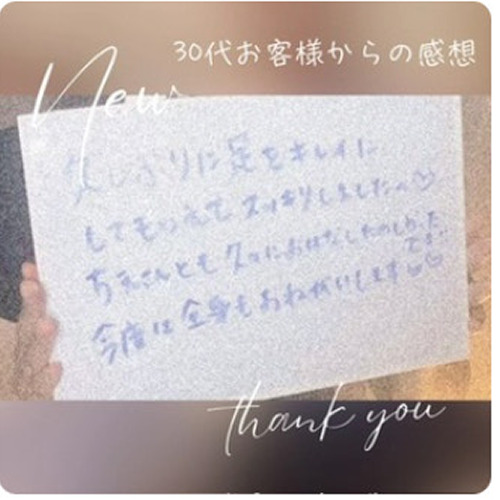 30代お客様からの感想
New
久しぶりに足をキレイに
もらえてスッキリしました
ちえさんとも久々におはなしたのしかった
です
今度は全身もおねがいします♡♡
thank you